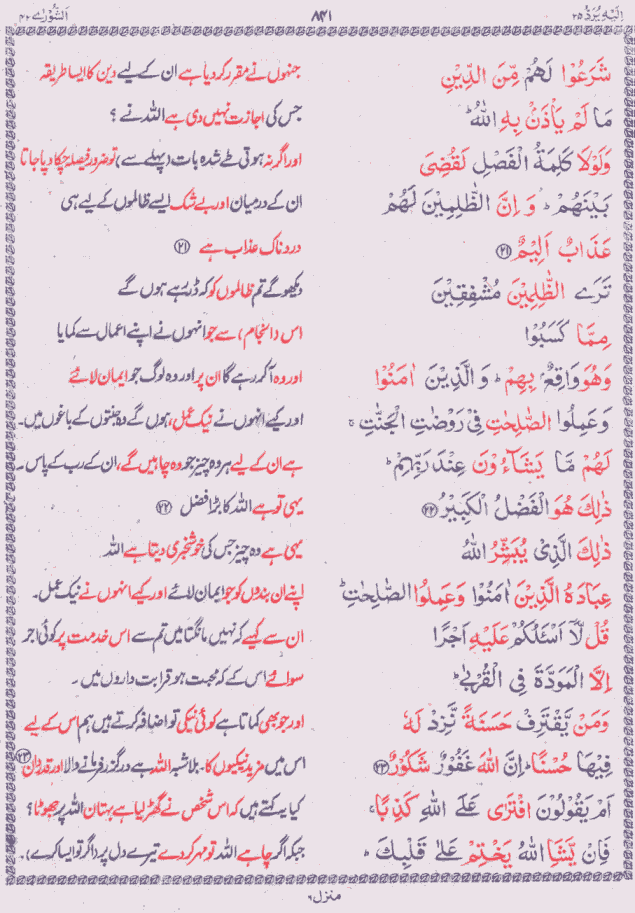 اِلَيْهِ يُرَدُّ ۲۵
۸۴۱
اَلشُّوْرٰى ۴۲
شَرَعُوْا لَهُمْ مِّنَ الدِّيْنِ
جنہوں نے مقرر کر دیا ہے ان کے لیے دین کا ایسا طریقہ
مَا لَمْ يَاْذَنْۢ بِهِ اللّٰهُ ؕ
جس کی اجازت نہیں دی ہے اللہ نے ؟
وَلَوْلَا كَلِمَةُ الْفَصْلِ لَقُضِىَ
اور اگر نہ ہوتی طے شدہ بات (پہلے سے) تو ضرور فیصلہ چکا دیا جاتا
بَيْنَهُمْ ؕ وَ اِنَّ الظّٰلِمِيْنَ لَهُمْ
ان کے درمیان اور بے شک ایسے ظالموں کے لیے ہی
عَذَابٌ اَلِيْمٌ ۲۱
دردناک عذاب ہے ۲۱
تَرَى الظّٰلِمِيْنَ مُشْفِقِيْنَ
دیکھو گے تم ظالموں کو کہ ڈر رہے ہوں گے
مِمَّا كَسَبُوْا
اس (انجام) سے جو انہوں نے اپنے اعمال سے کمایا
وَهُوَ وَاقِعٌۢ بِهِمْ ؕ وَ الَّذِيْنَ اٰمَنُوْا
اور وہ آ کر رہے گا ان پر اور وہ لوگ جو ایمان لائے
وَعَمِلُوا الصّٰلِحٰتِ فِىْ رَوْضٰتِ الْجَنّٰتِ ۚ
اور کیے انہوں نے نیک عمل، ہوں گے وہ جنتوں کے باغوں میں۔
لَهُمْ مَّا يَشَآءُوْنَ عِنْدَ رَبِّهِمْ ؕ
ہے ان کے لیے ہر وہ چیز جو وہ چاہیں گے، ان کے رب کے پاس۔
ذٰلِكَ هُوَ الْفَضْلُ الْكَبِيْرُ ۲۲
یہی تو ہے اللہ کا بڑا فضل ۲۲
ذٰلِكَ الَّذِىْ يُبَشِّرُ اللّٰهُ
یہی ہے وہ چیز جس کی خوشخبری دیتا ہے اللہ
عِبَادَهُ الَّذِيْنَ اٰمَنُوْا وَعَمِلُوا الصّٰلِحٰتِ ؕ
اپنے ان بندوں کو جو ایمان لائے اور کیے انہوں نے نیک عمل۔
قُلْ لَّاۤ اَسْئَلُكُمْ عَلَيْهِ اَجْرًا
ان سے کہیے کہ نہیں مانگتا میں تم سے اس خدمت پر کوئی اجر
اِلَّا الْمَوَدَّةَ فِى الْقُرْبٰى ؕ
سوائے اس کے کہ محبت ہو قرابت داروں میں۔
وَمَنْ يَّقْتَرِفْ حَسَنَةً نَّزِدْ لَهٗ
اور جو بھی کماتا ہے کوئی نیکی تو اضافہ کرتے ہیں ہم اس کے لیے
فِيْهَا حُسْنًا ؕ اِنَّ اللّٰهَ غَفُوْرٌ شَكُوْرٌ ۲۳
اس میں مزید نیکیوں کا۔ بلاشبہ اللہ ہے درگزر فرمانے والا اور قدردان ۲۳
اَمْ يَقُوْلُوْنَ افْتَرٰى عَلَى اللّٰهِ كَذِبًا ۚ
کیا یہ کہتے ہیں کہ اس شخص نے گھڑ لیا ہے بہتان اللہ پر جھوٹا؟
فَاِنْ يَّشَاِ اللّٰهُ يَخْتِمْ عَلٰى قَلْبِكَ ؕ
جبکہ اگر چاہے اللہ تو مہر کر دے تیرے دل پر (اگر تو ایسا کرے)۔
منزل ۶